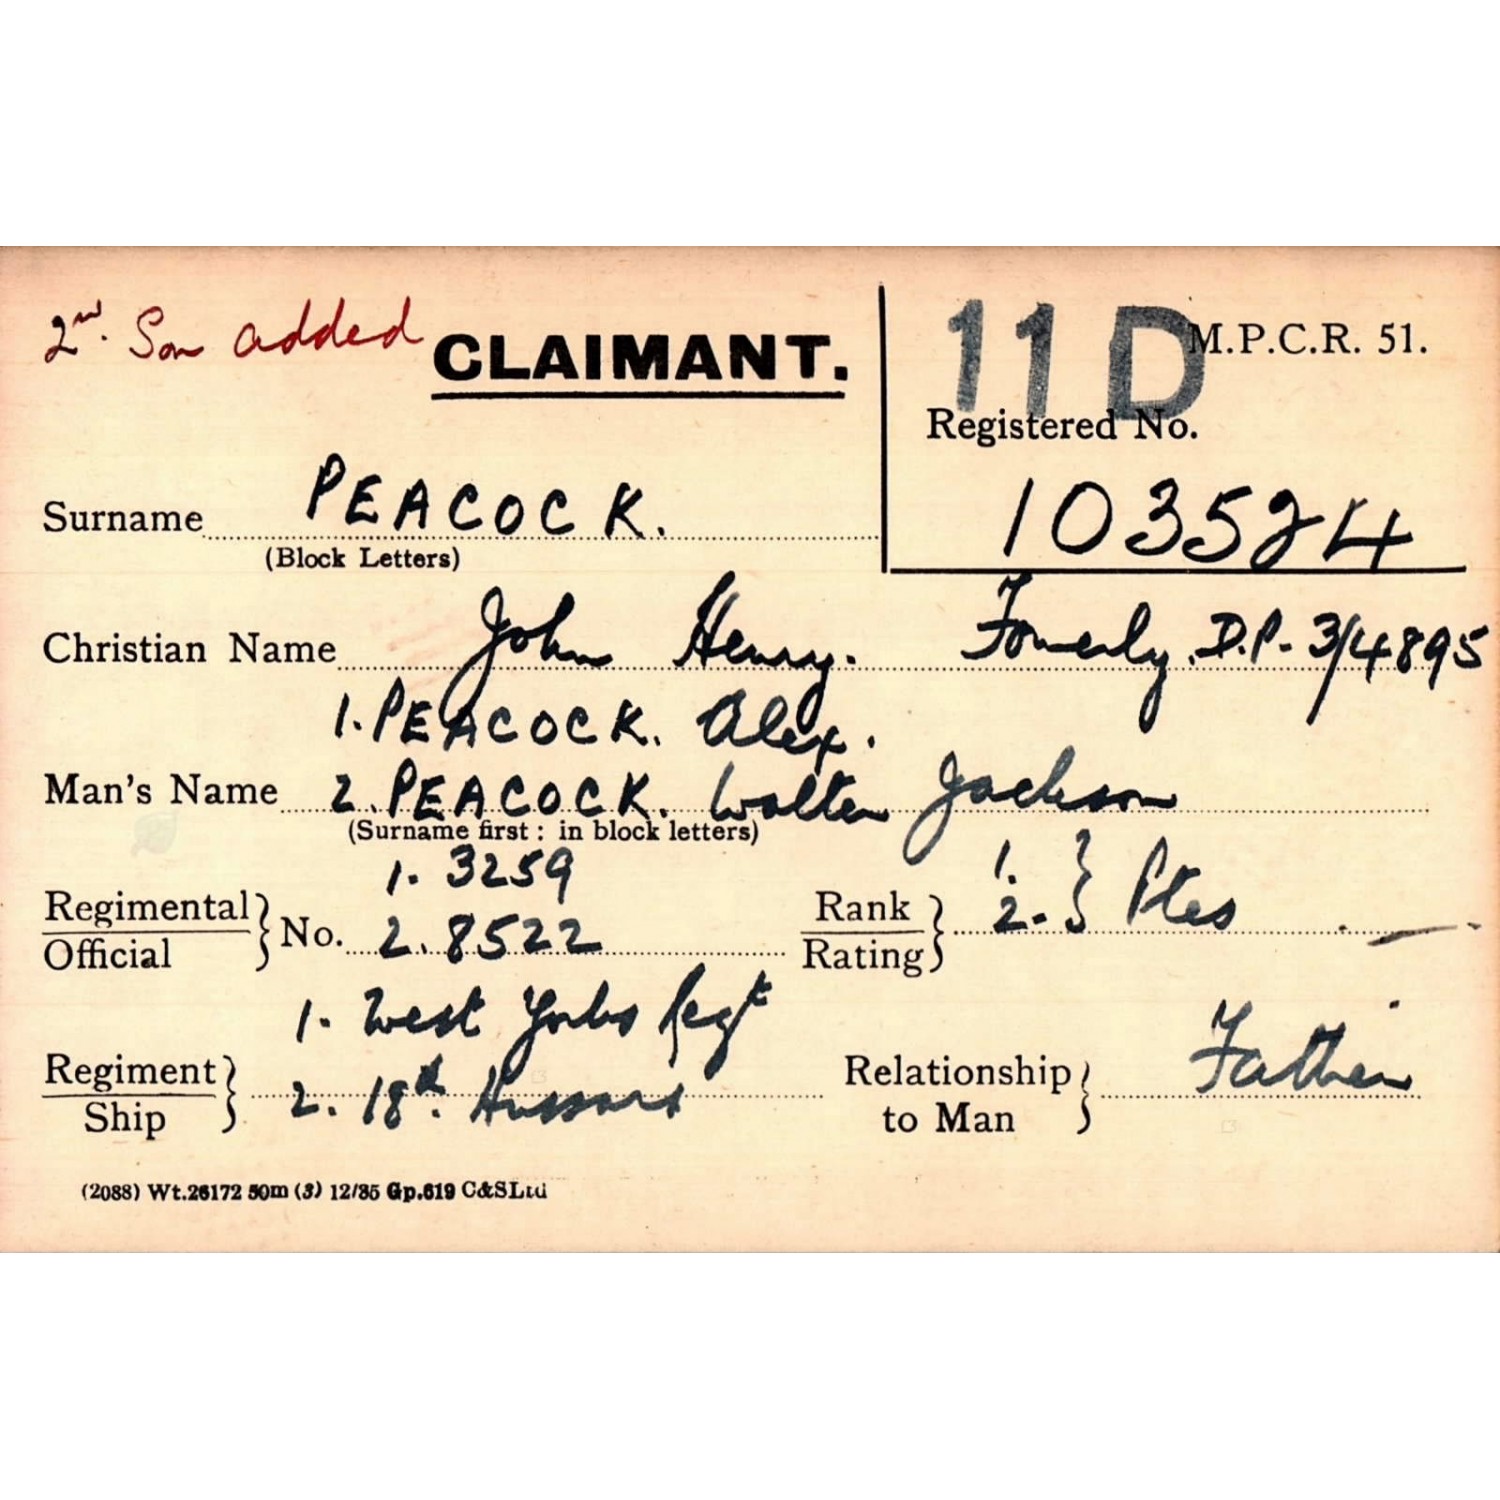 2nd. Son added
CLAIMANT.
11 D
M.P.C.R. 51.
Registered No.
103524
Surname PEACOCK.
(Block Letters)
Christian Name John Henry. Formerly D.P. 3/4895
1. PEACOCK. Alex.
Man's Name 2. PEACOCK. Walter Jackson
(Surname first : in block letters)
1. 3259
Regimental
Official } No. 2. 8522
Rank
Rating } 1. 2. } Ptes
1. West Yorks Regt
Regiment
Ship } 2. 18th. Hussars
Relationship
to Man } Father
(2088) Wt.26172 50m (3) 12/35 Gp.619 C&SLtd